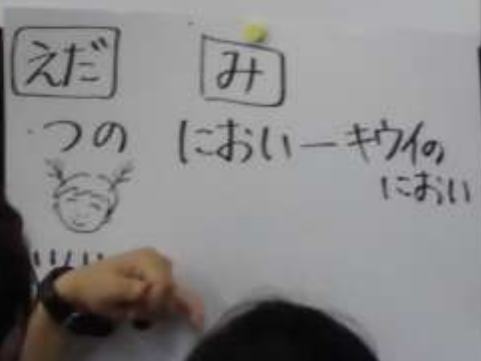 えだ
・つの
み
におい－キウイの
におい